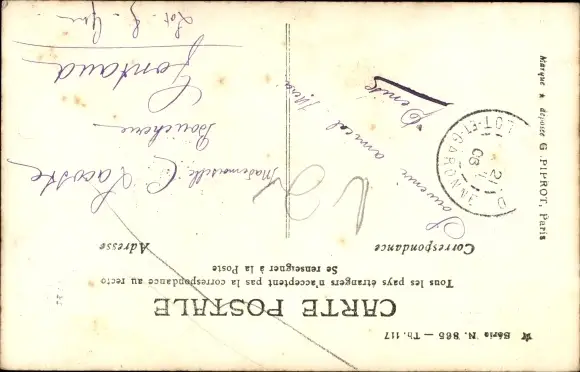 ★ Série N. 865 — Th. 117
CARTE POSTALE
Tous les pays étrangers n'acceptent pas la correspondance au recto
Se renseigner à la Poste
Correspondance
Adresse
Souvenir amical
Denise
Mademoiselle C. Lacoste
Boucherie
Gontaud
Lot-&-Gne
LOT-ET-GARONNE
21
08
Marque ★ déposée G. PIPROT, Paris